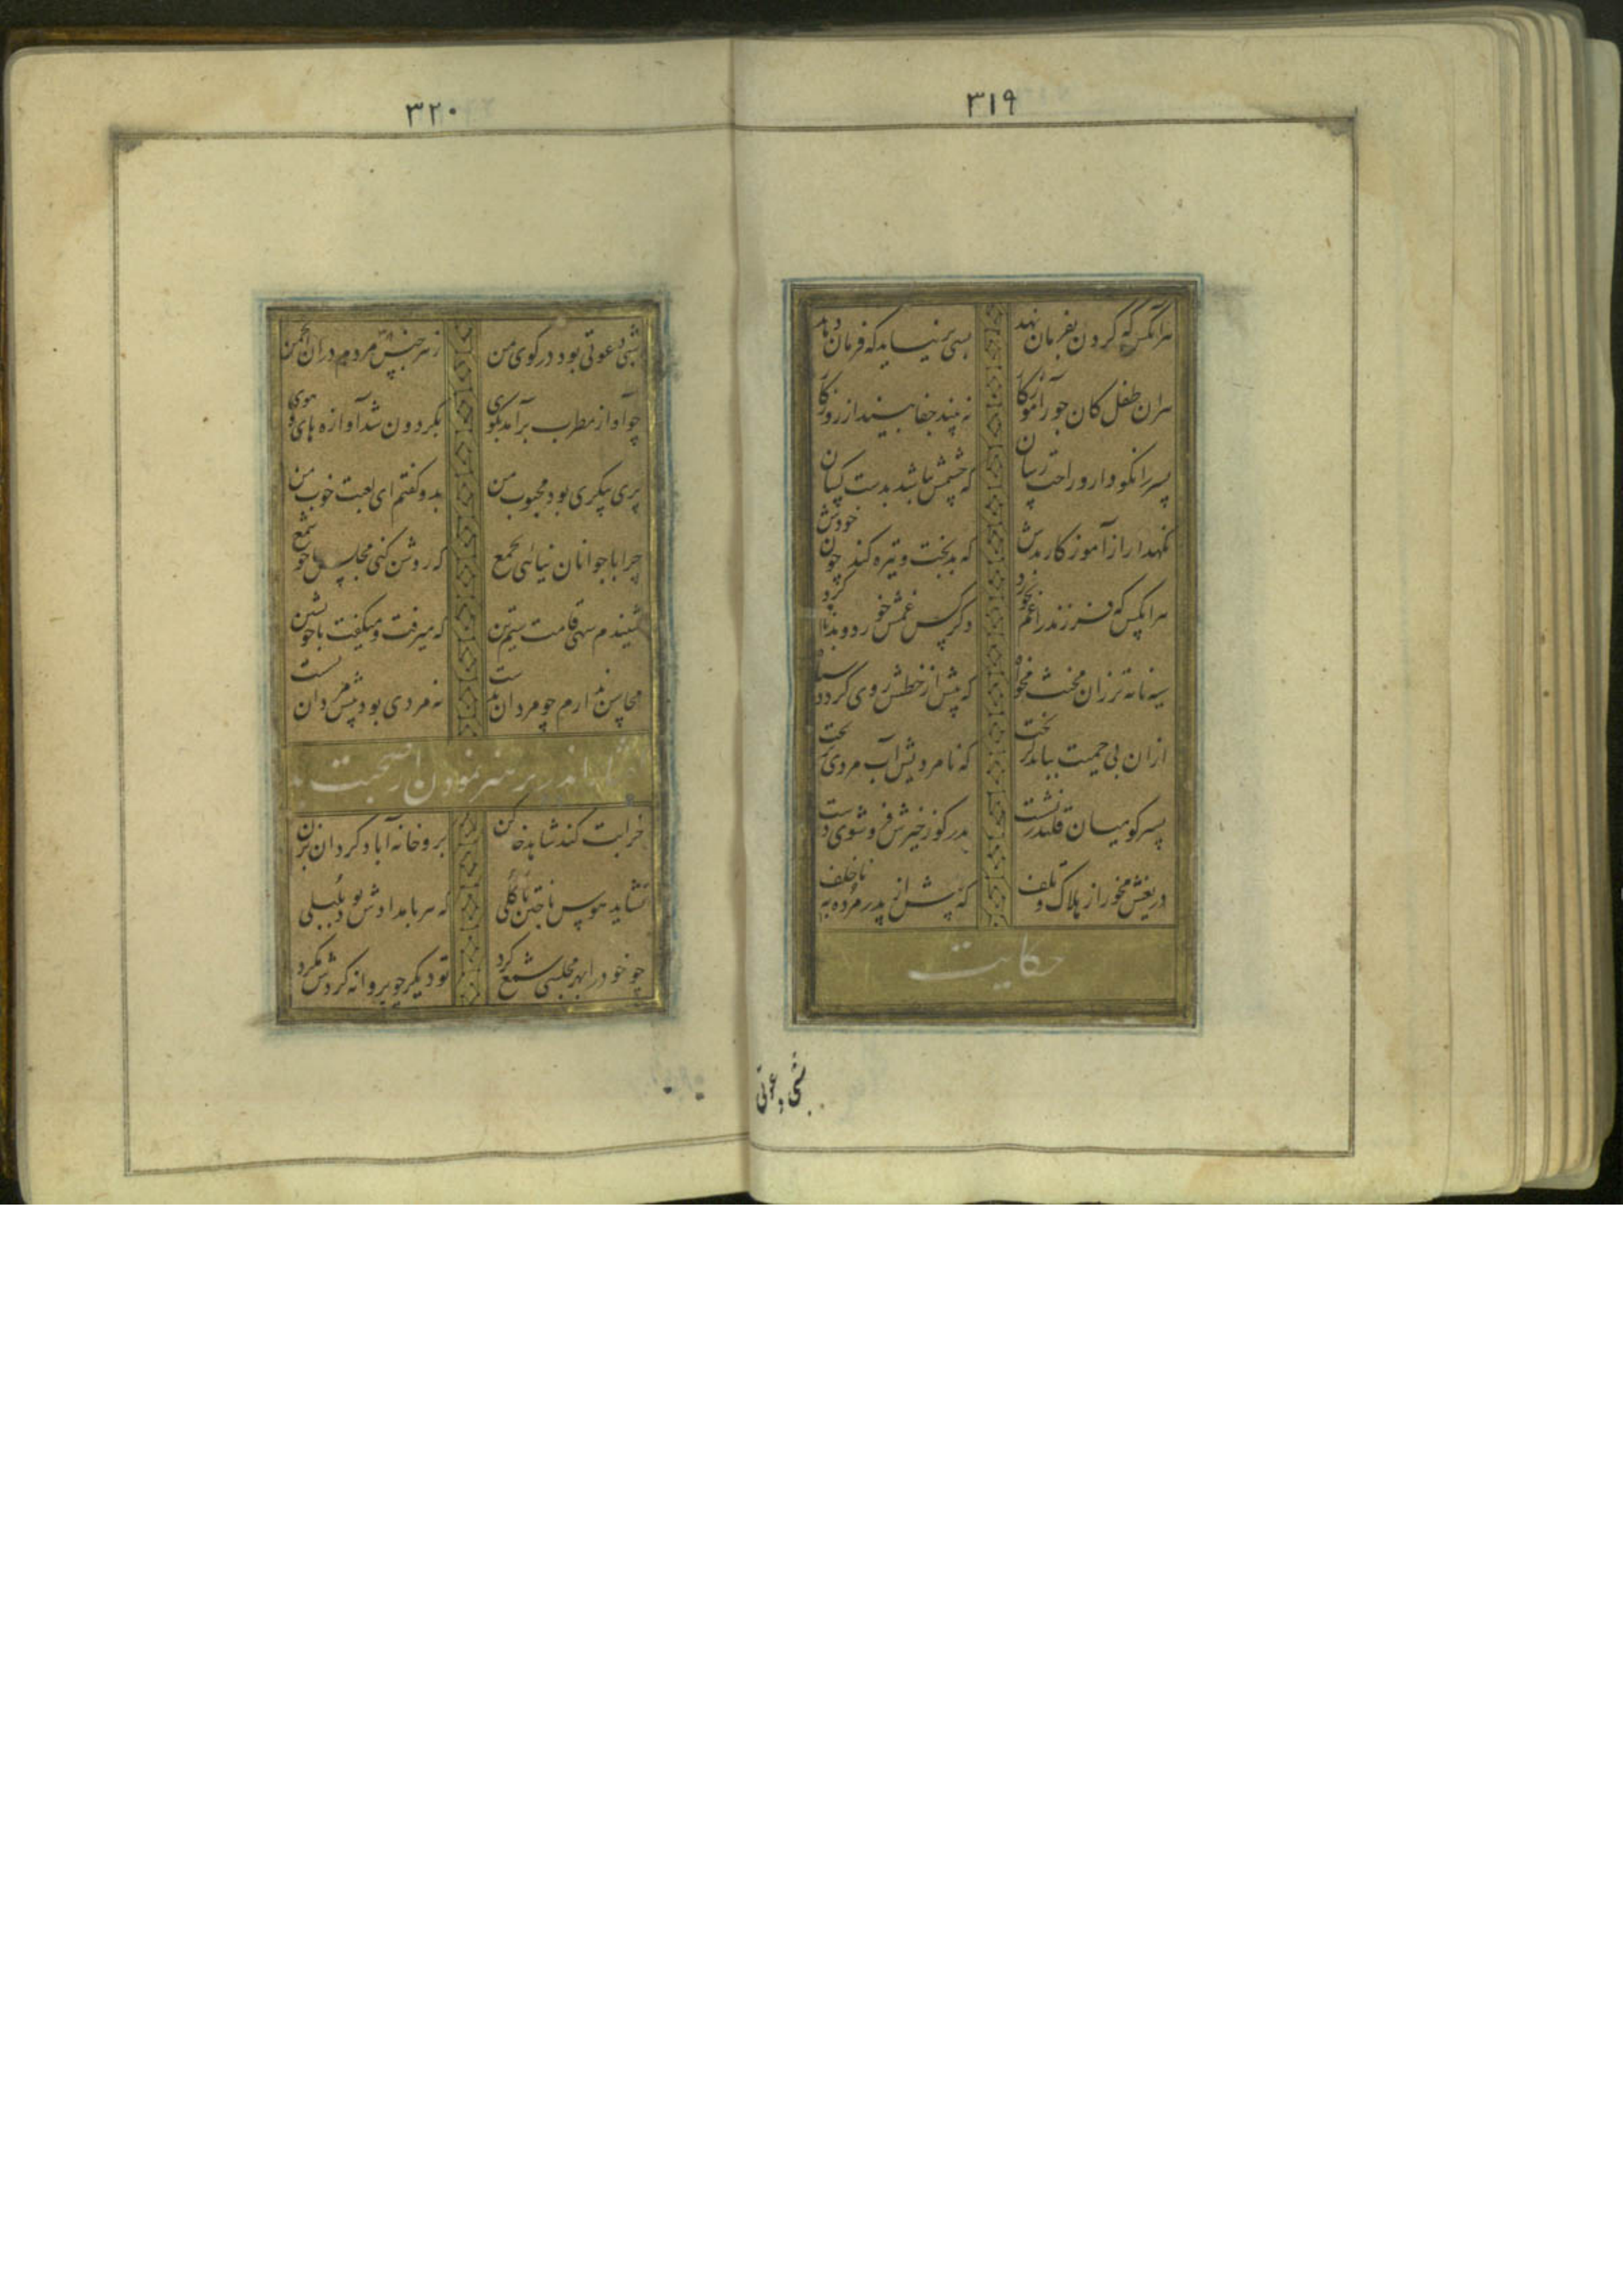 ۳۱۹
هرآنکس که گردن بفرمان نهد بسی برنیاید که فرمان دهد
هران طفل کان جور آموزگار نه بیند جفا بیند از روزگار
پسر را نکو دار و راحت رسان که چشمش نباشد بدست کسان
نگهدار از آموزگار بدش که بدبخت و تیره کند چون خودش
هرانکس که فرزند را غم نخورد دگر کس غمش خورد و بدنام کرد
سیه نامه تر زان مخنث مخواه که پیش از خطش روی گردد سیاه
ازان بی حمیت بباید گریخت که نامردیش آب مردی بریخت
پسر کو میان قلندر نشست پدر کو ز خیرش فرو شوی دست
دریغش مخور از هلاک و تلف که پیش از پدر مرده به ناخلف
حکایت
شبی دعوتی
۳۲۰
شبی دعوتی بود در کوی من ز هر جنس مردم دران انجمن
چو آواز مطرب برآمد بکوی بگردون شد آوازه های و هوی
پری پیکری بود محبوب من بدو گفتم ای لعبت خوب من
چرا با جوانان نیائی بجمع که روشن کنی مجلس ما چو شمع
شنیدم سهی قامت سیم تن که میرفت و میگفت با خویشتن
محاسن ندارم چو مردان بدست نه مردی بود پیش مردان نشست
اندر پرهیز نمودن از صحبت
خرابت کند شاهد خانه کن برو خانه آباد گردان بزن
نشاید هوس باختن با گلی که هر بامدادش بود بلبلی
چو خود را بهر مجلسی شمع کرد تو دیگر چو پروانه گردش مگرد